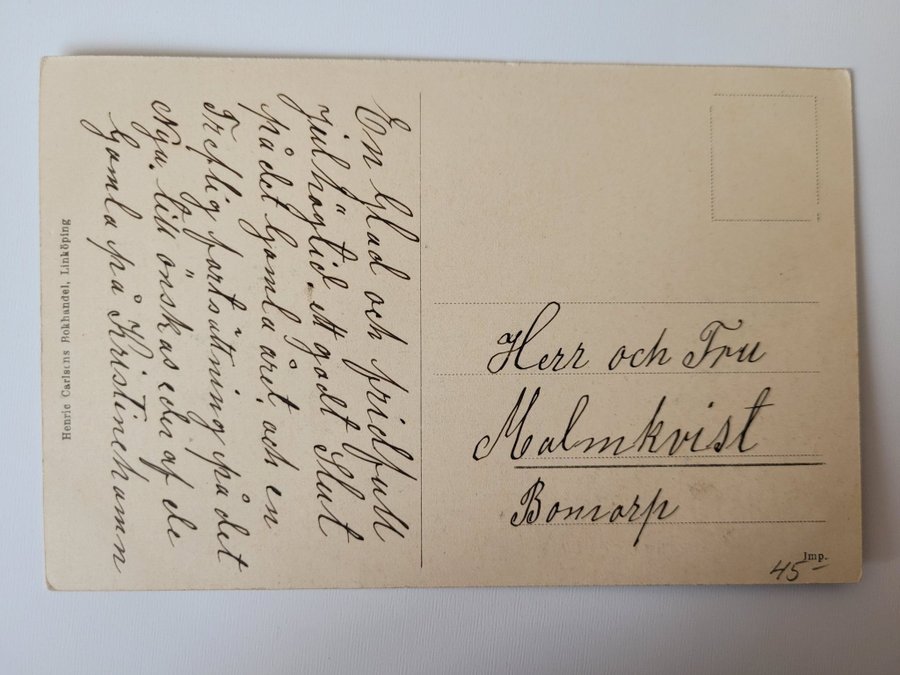 En Glad och fridfull
julhögtid. ett godt Slut
på det Gomla året och en
Treflig fortsättning på det
Nya. till önskas eder af de
Gomla på Kristinehamn
Herr och Fru
Malmkvist
Bomorp
Henric Carlsons Bokhandel, Linköping
Imp.
45-